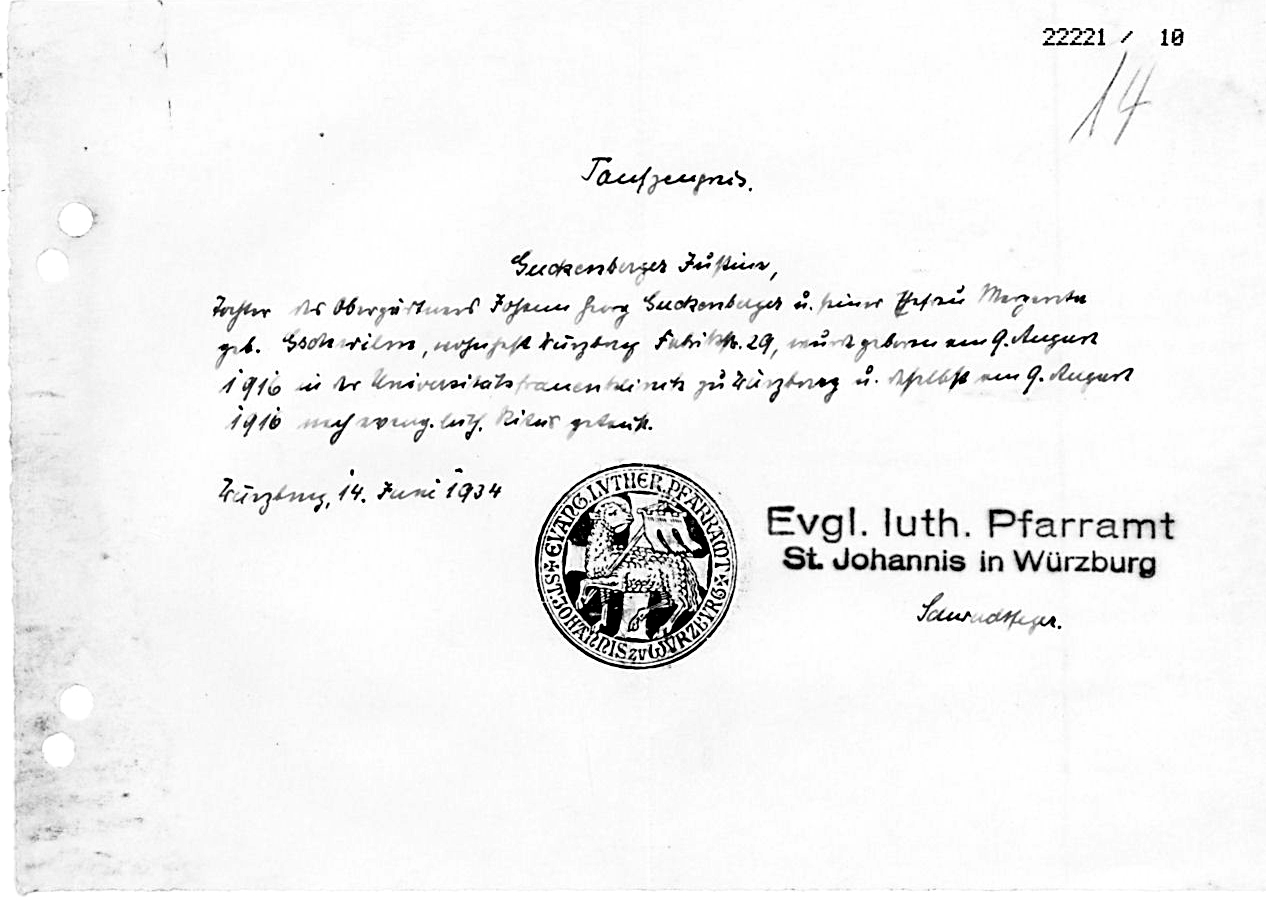 22221 / 10
14
Taufzeugnis.
Guckenberger Justine,
Tochter des Obergärtners Johann Georg Guckenberger u. seiner Ehefrau Margareta
geb. wohnhaft Würzburg Fabrikstr. 29, wurde geboren am 9. August
1916 in der Universitätsfrauenklinik zu Würzburg u. daselbst am 9. August
1916 nach evang. luth. Ritus getauft.
Würzburg, 14. Juni 1934
EVANG. LVTHER. PFARRAMT ST. JOHANNIS ZV WVRZBVRG
Evgl. luth. Pfarramt
St. Johannis in Würzburg